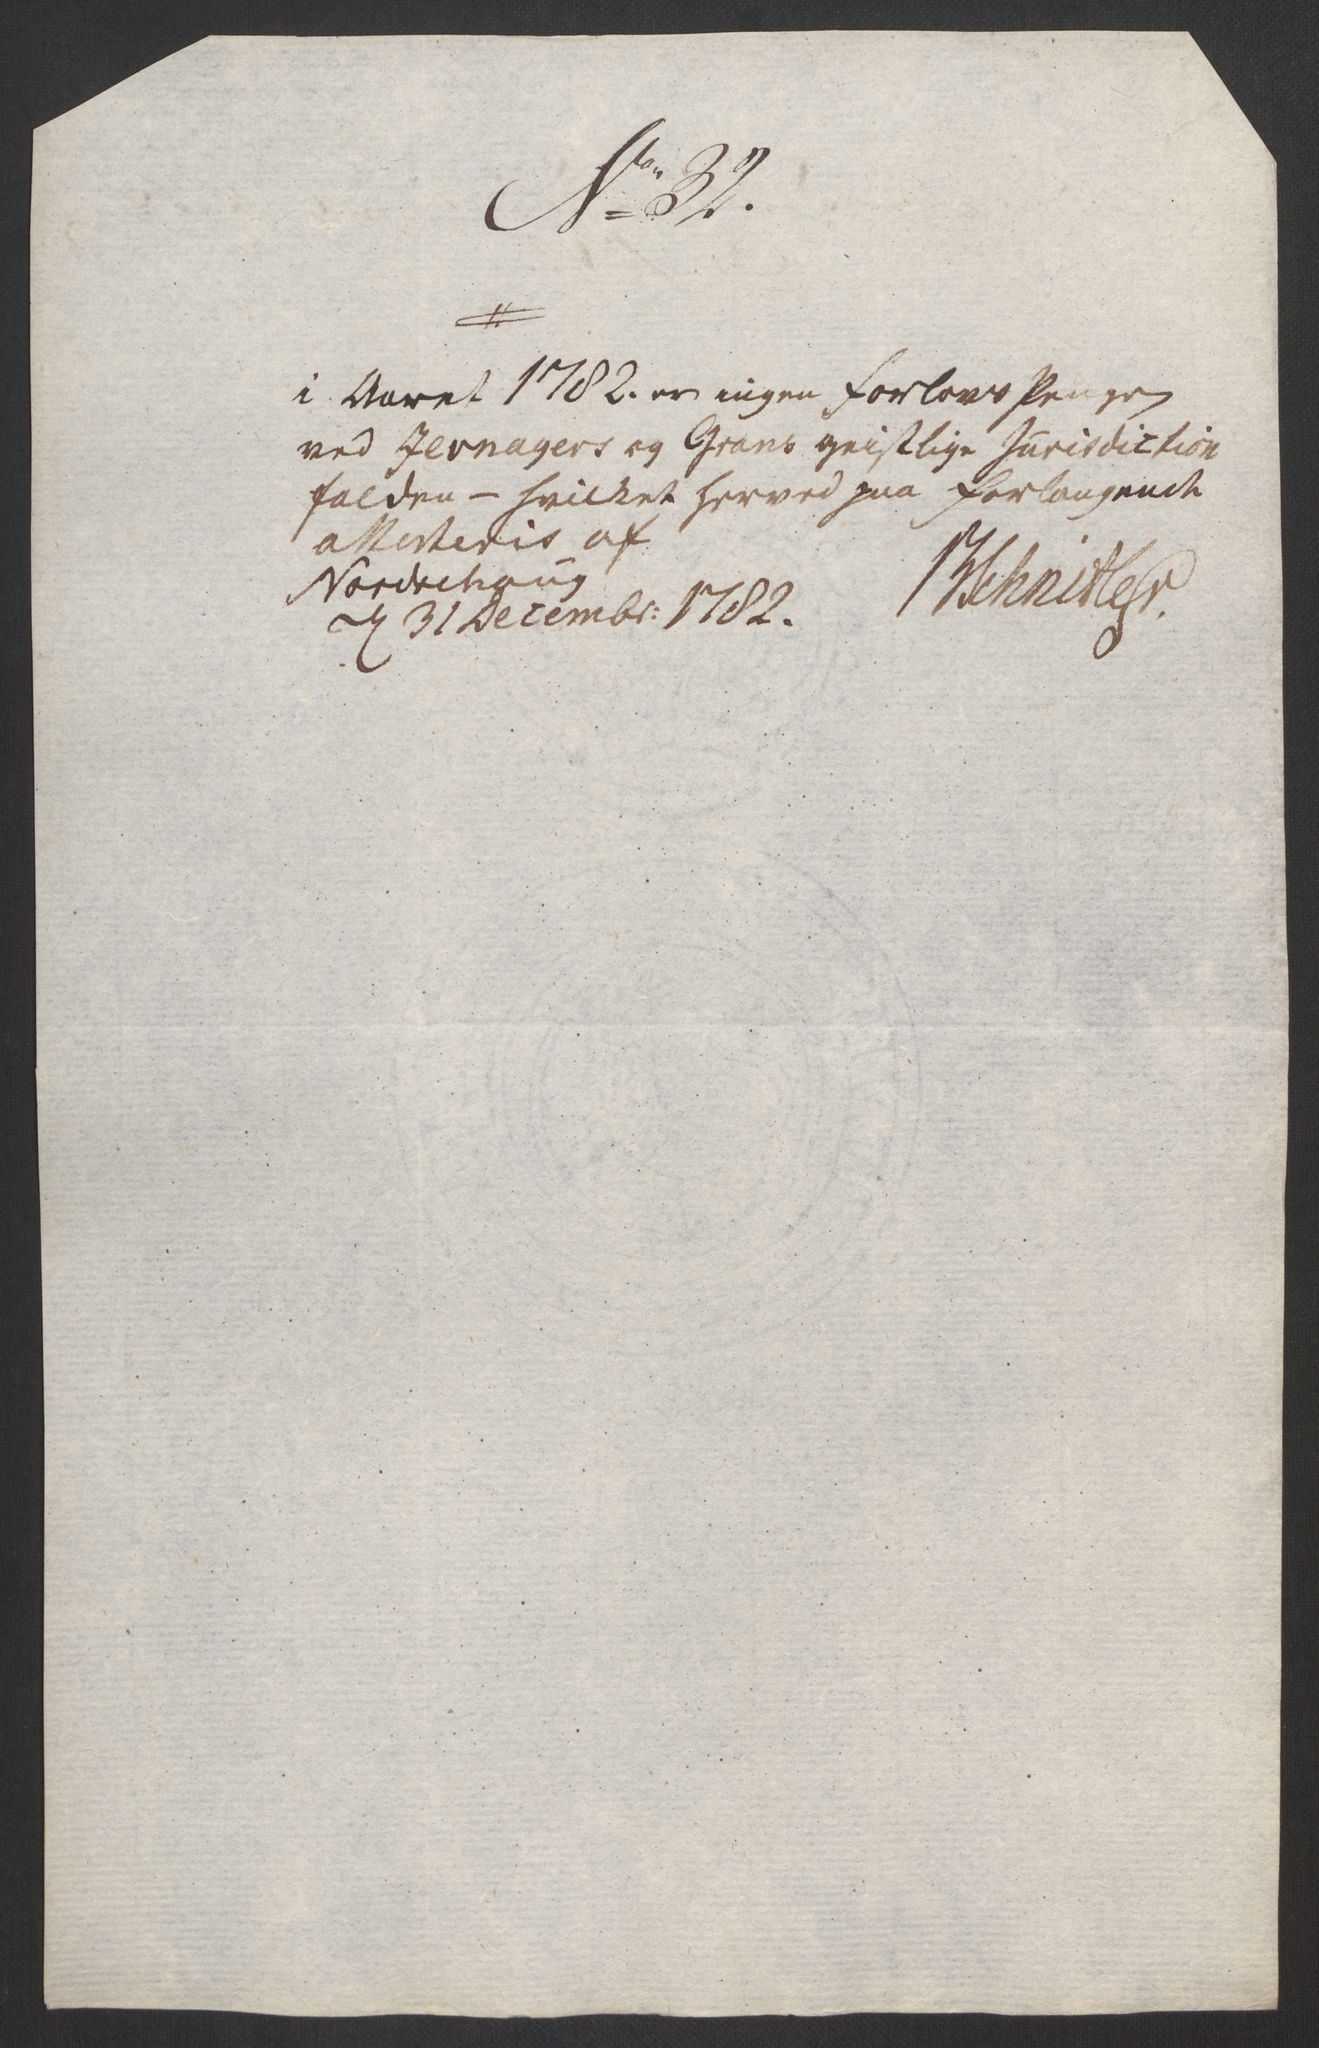 No 32.
i Aaret 1782. er ingen Forlovs Penge
ved Jevnagers og Grans geistlige Jurisdiction
falden – hvilket herved paa Forlangende
attesteris af
Norderhoug
d 31 Decembr: 1782.
Schnitler.